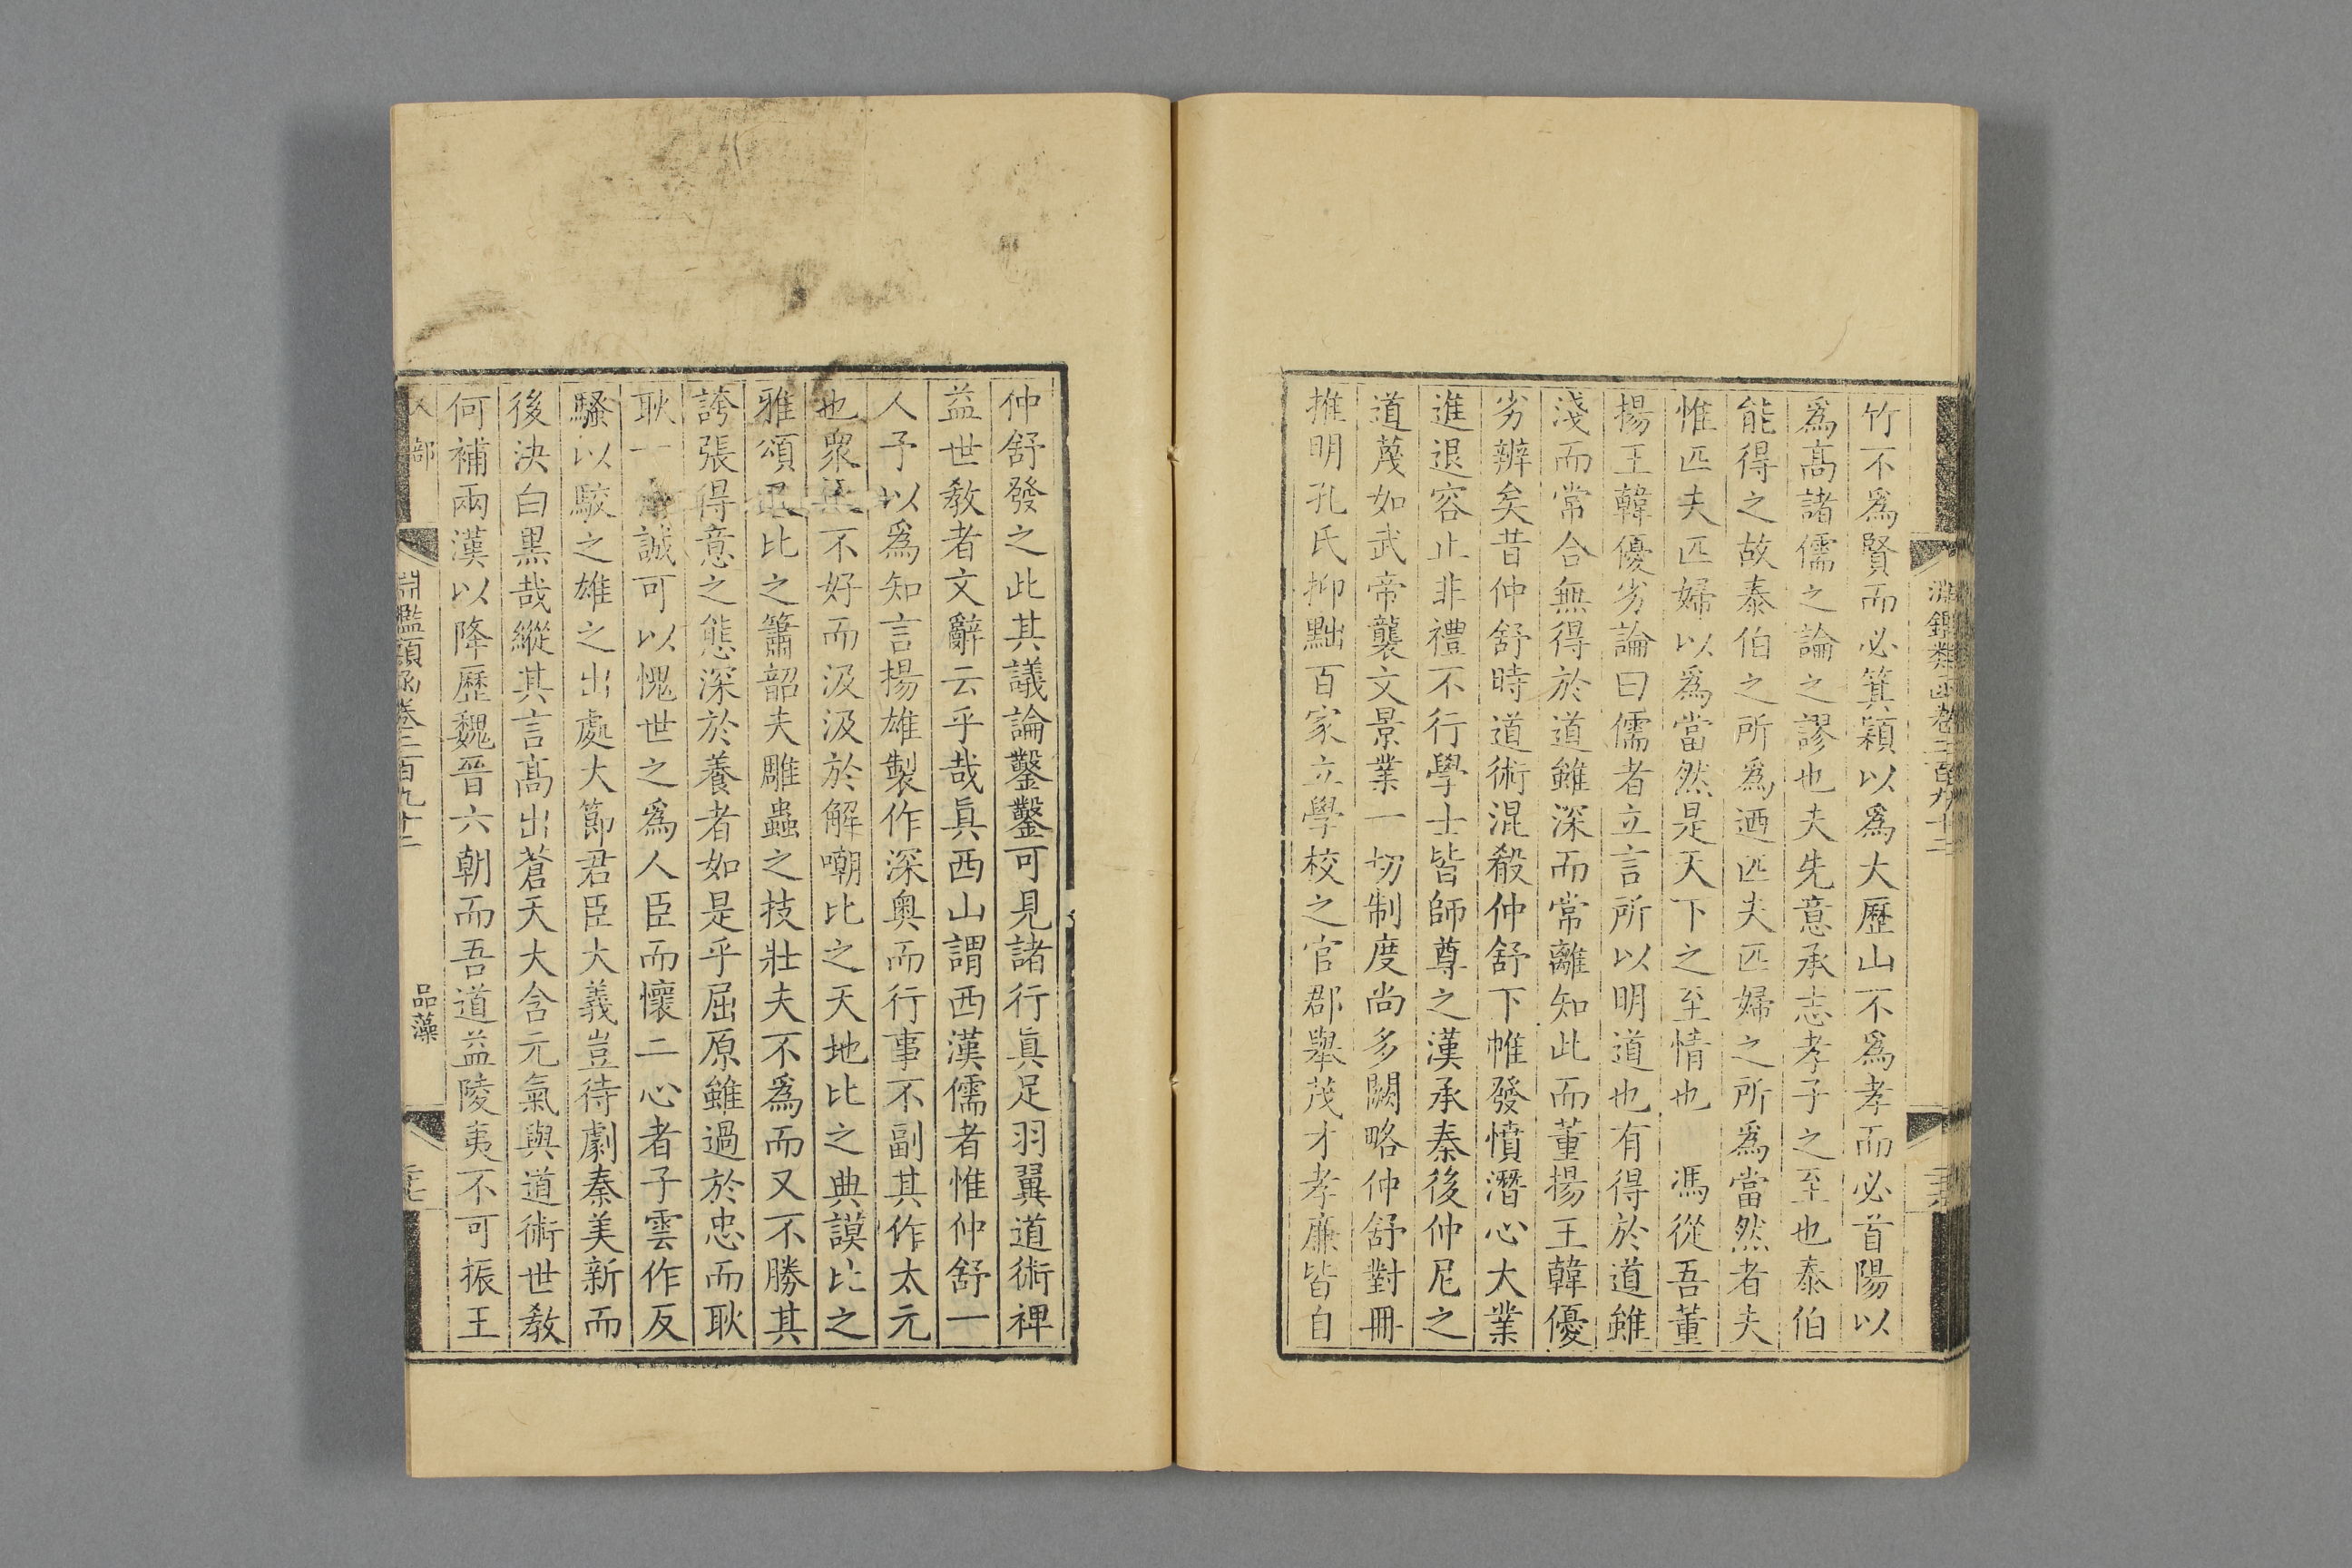 竹不爲賢而必箕潁以爲大歷山不爲孝而必首陽以
爲高諸儒之論之謬也夫先意承志孝子之至也泰伯
能得之故泰伯之所爲迺匹夫匹婦之所爲當然者夫
惟匹夫匹婦以爲當然是天下之至情也 馮從吾董
揚王韓優劣論曰儒者立言所以明道也有得於道雖
淺而常合無得於道雖深而常離知此而董揚王韓優
劣辨矣昔仲舒時道術混殽仲舒下帷發憤潛心大業
進退容止非禮不行學士皆師尊之漢承秦後仲尼之
道蔑如武帝襲文景業一切制度尚多闕略仲舒對冊
推明孔氏抑黜百家立學校之官郡舉茂才孝廉皆自
仲舒發之此其議論鑿鑿可見諸行眞足羽翼道術裨
益世教者文辭云乎哉眞西山謂西漢儒者惟仲舒一
人予以爲知言揚雄製作深奥而行事不副其作太元
也衆 不好而汲汲於解嘲比之天地比之典謨比之
雅頌 比之簫韶夫雕蟲之技壯夫不爲而又不勝其
誇張得意之態深於養者如是乎屈原雖過於忠而耿
耿一 誠可以愧世之爲人臣而懷二心者子雲作反
騷以駮之雄之出處大節君臣大義豈待劇秦美新而
後決白黒哉縱其言高出蒼天大含元氣與道術世教
何補兩漢以降歷魏晉六朝而吾道益陵夷不可振王
人部 淵鑑類函卷二百九十二 品藻